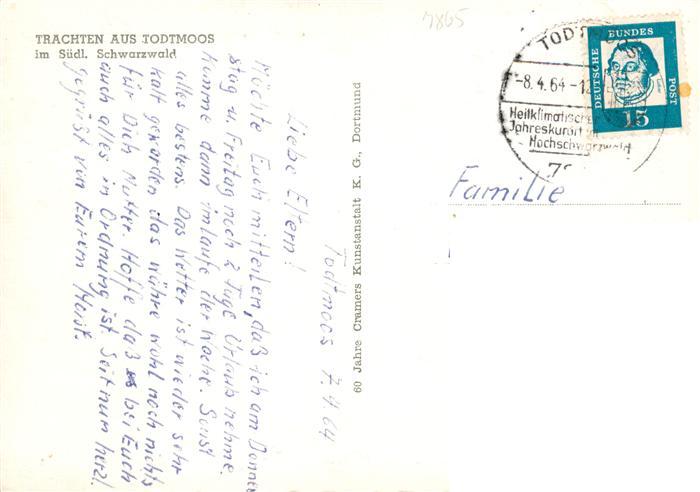 TRACHTEN AUS TODTMOOS
im Südl. Schwarzwald
7865
Todtmoos 7.4.64
Liebe Eltern!
Möchte Euch mitteilen, daß ich am Donners
stag u. Freitag noch 2 Tage Urlaub nehme.
Komme dann imlaufe der Woche. Sonst
alles bestens. Das Wetter ist wieder sehr
kalt geworden das währe wohl noch nichts
für Dich Mutter. Hoffe daß es bei Euch
auch alles in Ordnung ist. Seit nun herzl.
gegrüßt von Eurem Horst.
60 Jahre Cramers Kunstanstalt K. G., Dortmund
TODTMOOS
-8.4.64-12
Heilklimatischer
Jahreskurort im
Hochschwarzwald
DEUTSCHE BUNDES POST
15
Familie